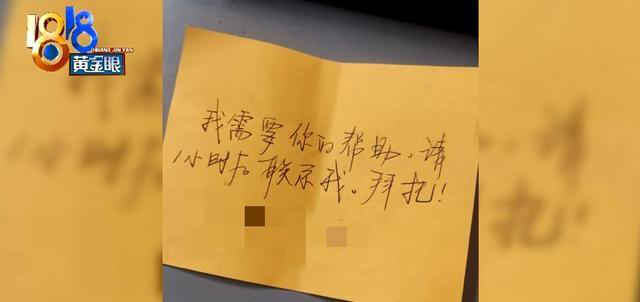 1818
HUANG JIN YAN
黄金眼
我需要你的帮助。请
1小时后联系我。拜托!